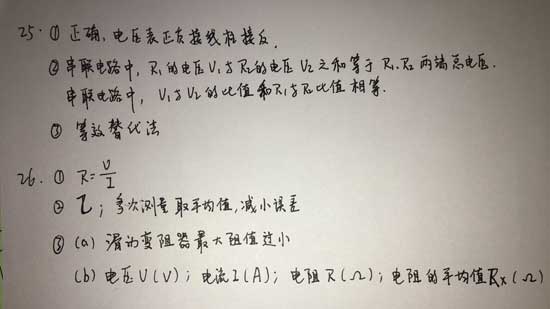 25. ① 正确, 电压表正负接线柱接反.
② 串联电路中, R₁的电压V₁与R₂的电压V₂之和等于R₁、R₂两端总电压.
串联电路中, V₁与V₂的比值和R₁与R₂比值相等.
③ 等效替代法
26. ① R=U/I
② 乙; 多次测量取平均值,减小误差
③ (a) 滑动变阻器最大阻值过小
(b) 电压U(V); 电流I(A); 电阻R(Ω); 电阻的平均值Rx(Ω)